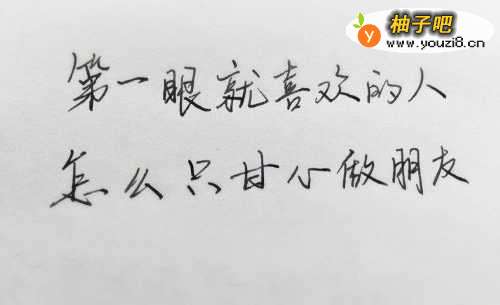 柚子吧
www.youzi8.cn
第一眼就喜欢的人
怎么只甘心做朋友